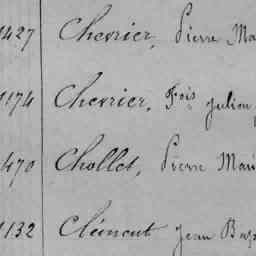 1427 Chevrier, Pierre Ma
1174 Chevrier, Fois Julien
470 Chollet, Pierre Mari
1132 Clément Jean Bap